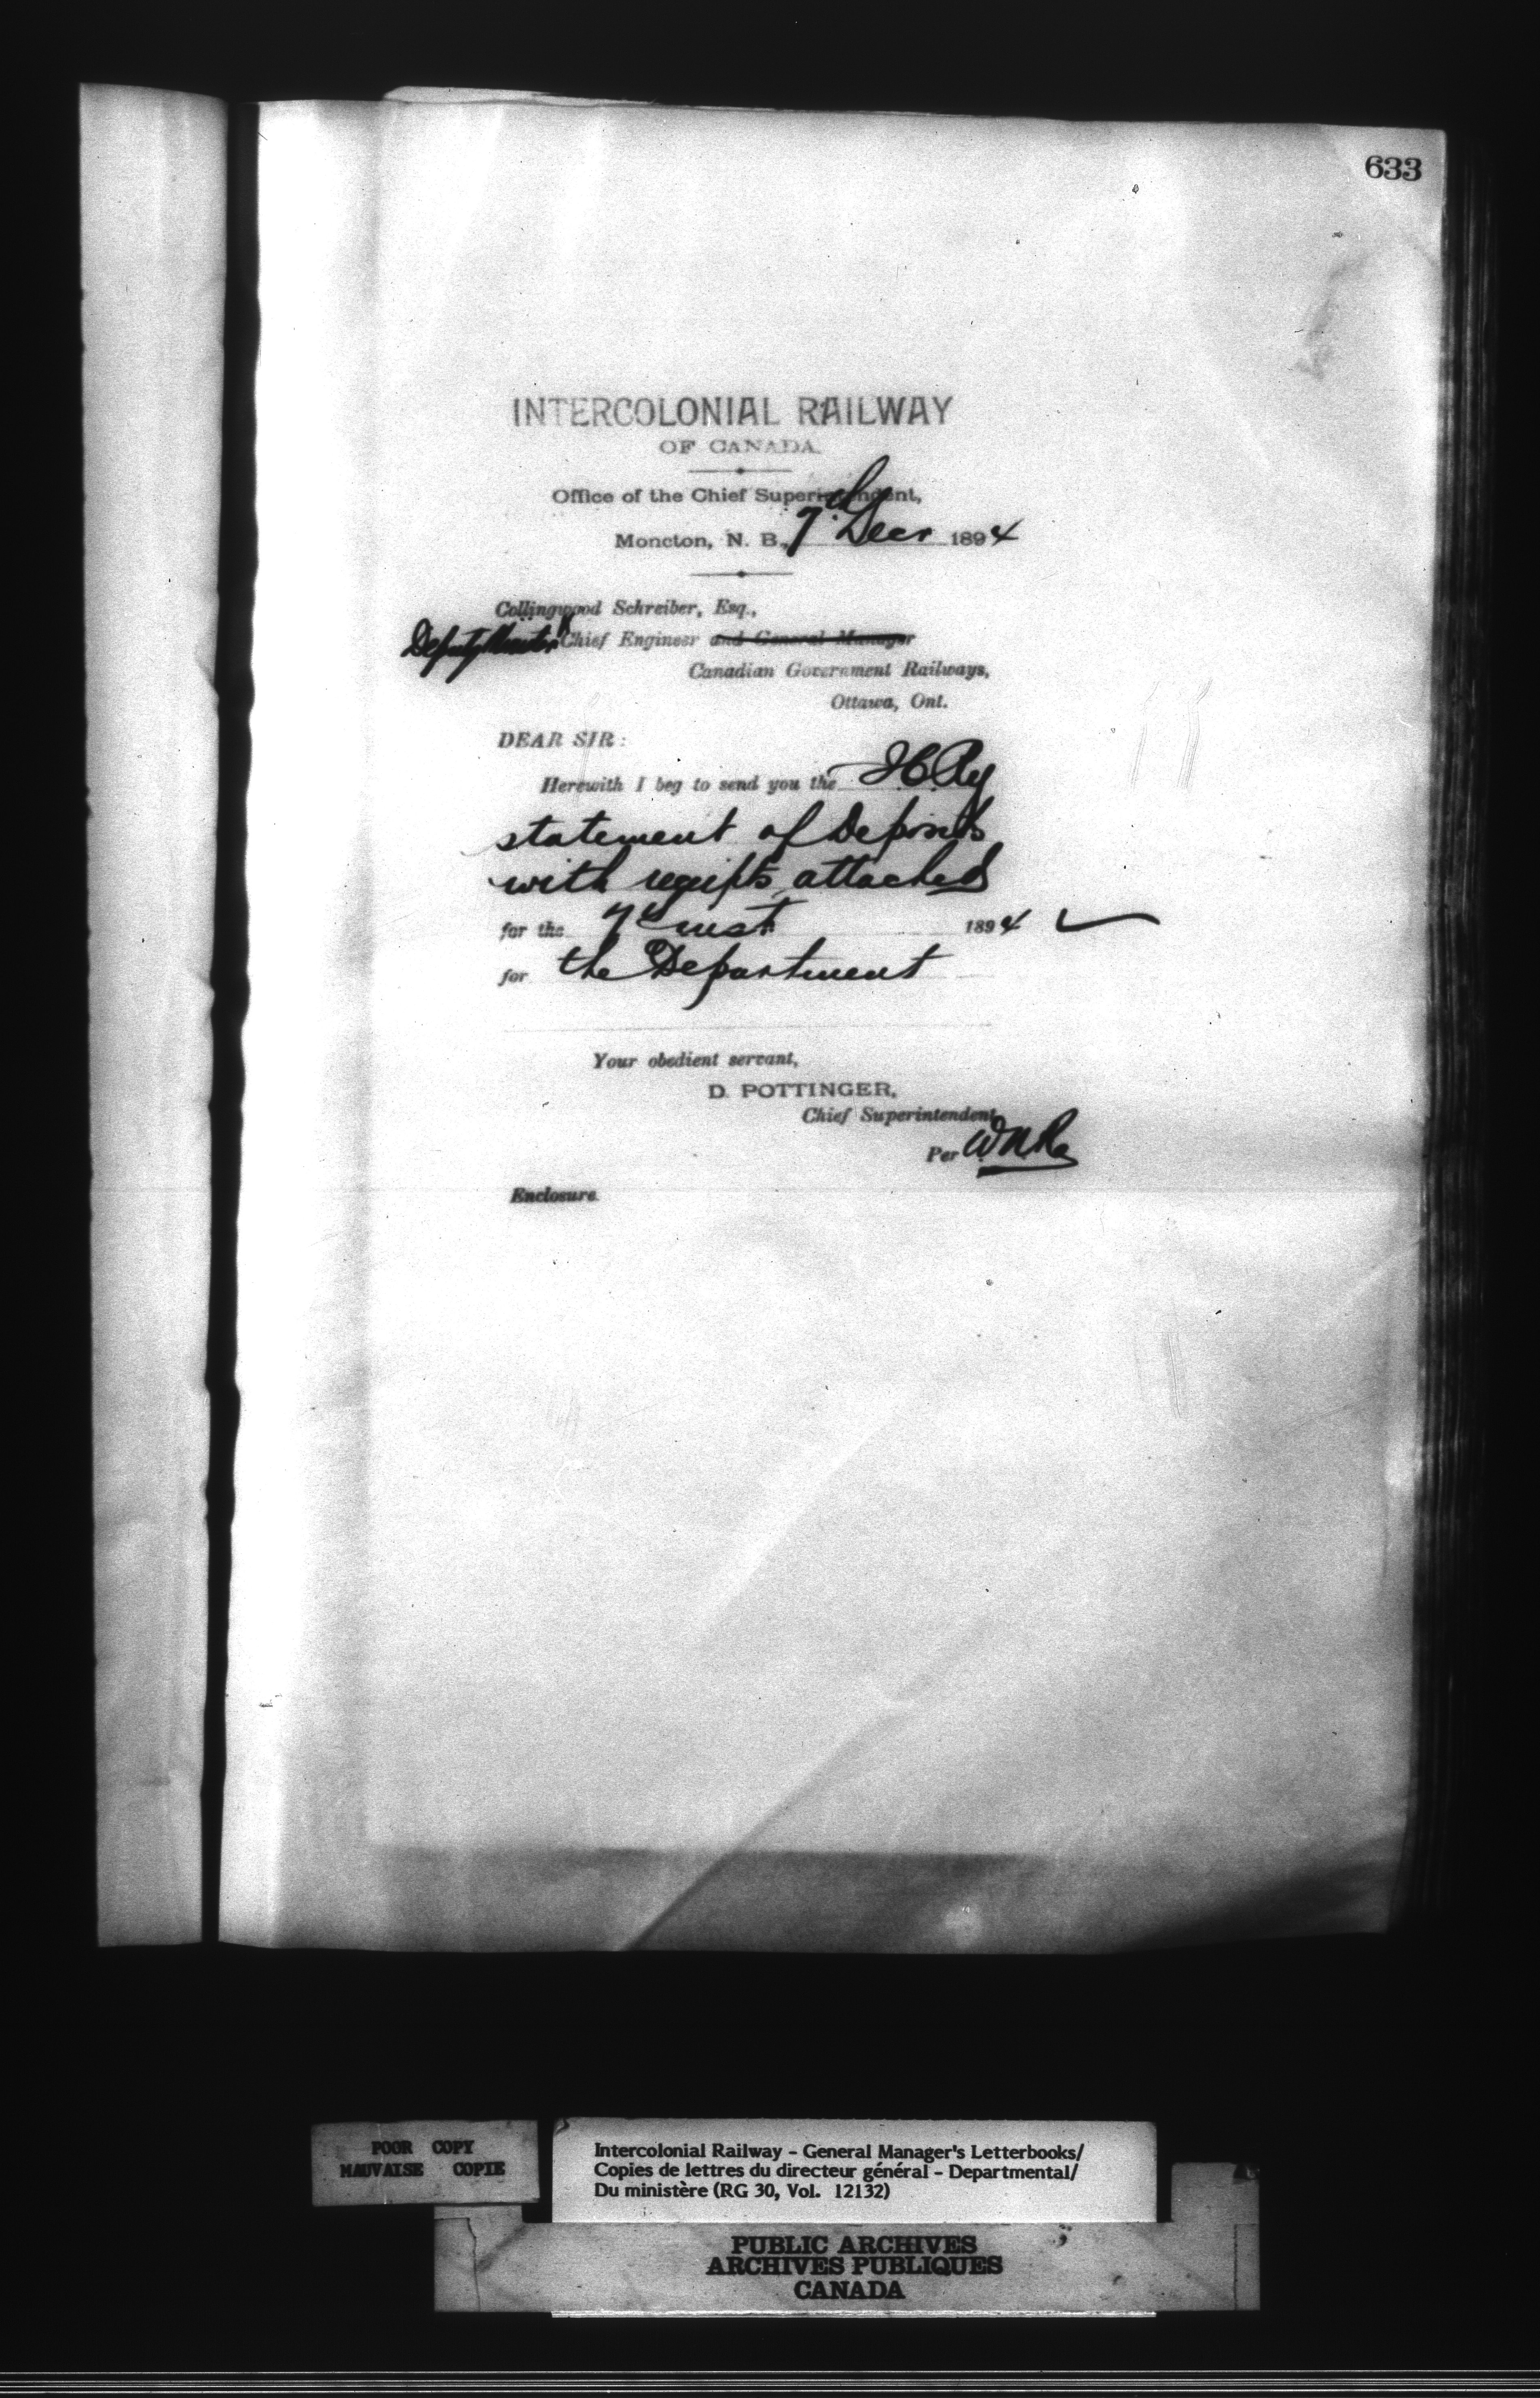 633
INTERCOLONIAL RAILWAY
OF CANADA.
Office of the Chief Superintendent,
Moncton, N. B., 7th Decr 1894
Collingwood Schreiber, Esq.,
Deputy Minister & Chief Engineer and General Manager
Canadian Government Railways,
Ottawa, Ont.
DEAR SIR:
Herewith I beg to send you the I C Ry
statement of Deposits
with receipts attached
for the 7th inst 1894
for the Department
Your obedient servant,
D. POTTINGER,
Chief Superintendent,
Per
Enclosure.
POOR COPY
MAUVAISE COPIE
Intercolonial Railway - General Manager's Letterbooks/
Copies de lettres du directeur général - Departmental/
Du ministère (RG 30, Vol. 12132)
PUBLIC ARCHIVES
ARCHIVES PUBLIQUES
CANADA